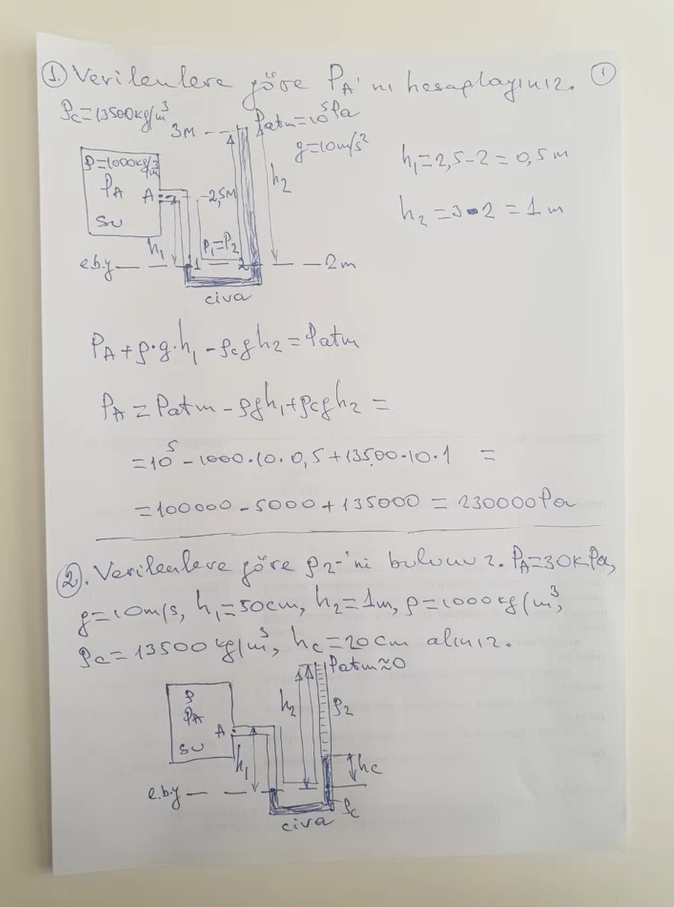 1. Verilenlere göre PA'nı hesaplayınız. 1
ρc=13500kg/m³
3M
Patm=10⁵Pa
g=10m/s²
h₁=2,5-2=0,5m
h₂=3-2=1m
ρ=1000kg/m³
PA A
su
2,5M
h₂
h₁
P₁=P₂
e.b.y 1 2 2m
civa
PA+ρ·g·h₁-ρcgh₂=Patm
PA=Patm-ρgh₁+ρcgh₂=
=10⁵-1000·10·0,5+13500·10·1 =
=100000-5000+135000=230000Pa
2. Verilenlere göre ρ2-'ni bulunuz. PA=30kPa,
g=10m/s, h₁=50cm, h₂=1m, ρ=1000kg/m³,
ρc=13500kg/m³, hc=20cm alınız.
Patm≈0
ρ
PA
A
su
h₂
ρ2
h₁
hc
e.b.y
ρc
civa